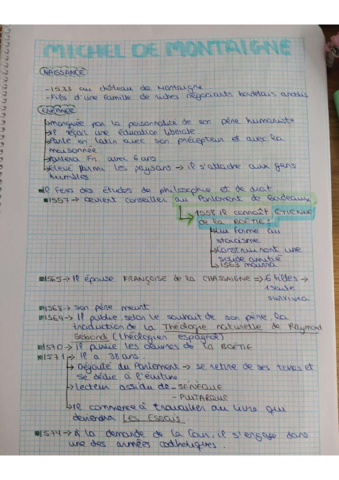 MICHEL DE MONTAIGNE
NAISSANCE
- 1533 au château de Montaigne
- Fils d'une famille de riches négociants bordelais anoblis
ENFANCE
Marquée par la personnalité de son père humaniste
Il reçoit une éducation libérale
Parle en latin avec son précepteur et avec la
maisonnée
Parlera Fr. avec 6 ans
élevé parmi les paysans → il s'attache aux gens
humbles
Il fera des études de philosophie et de droit
1557 → devient conseiller au Parlement de Bordeaux
1558 il connaît ETIENNE
de la BOÉTIE:
lui forme au
stoïcisme
construiront une
solide amitié
1563 mourra
1565 → Il épouse FRANÇOISE de la CHASSAIGNE → 6 filles →
1 seule
survivra
1568 → son père meurt
1569 → Il publie selon le souhait de son père, la
traduction de la Théologie naturelle de Raymond
Sebond (théologien espagnol)
1570 → Il publie les œuvres de la BOÉTIE
1571 → Il a 38 ans
Dégoûté du Parlement → se retire de ses terres et
se dédie à l'écriture
lecteur assidu de - SÉNÈQUE
- PLUTARQUE
Il commence à travailler au livre qui
deviendra Les Essais
1574 → À la demande de la Cour, il s'engage dans
une des armées catholiques.